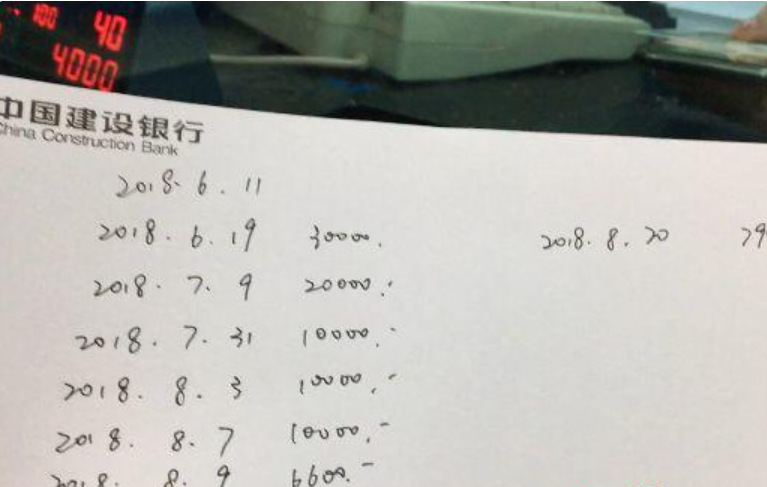 100 40
4000
中国建设银行
China Construction Bank
2018.6.11
2018.6.19 30000. 2018.8.20 79
2018.7.9 20000.-
2018.7.31 10000.-
2018.8.3 10000.-
2018.8.7 10000.-
2018.8.9 6600.-